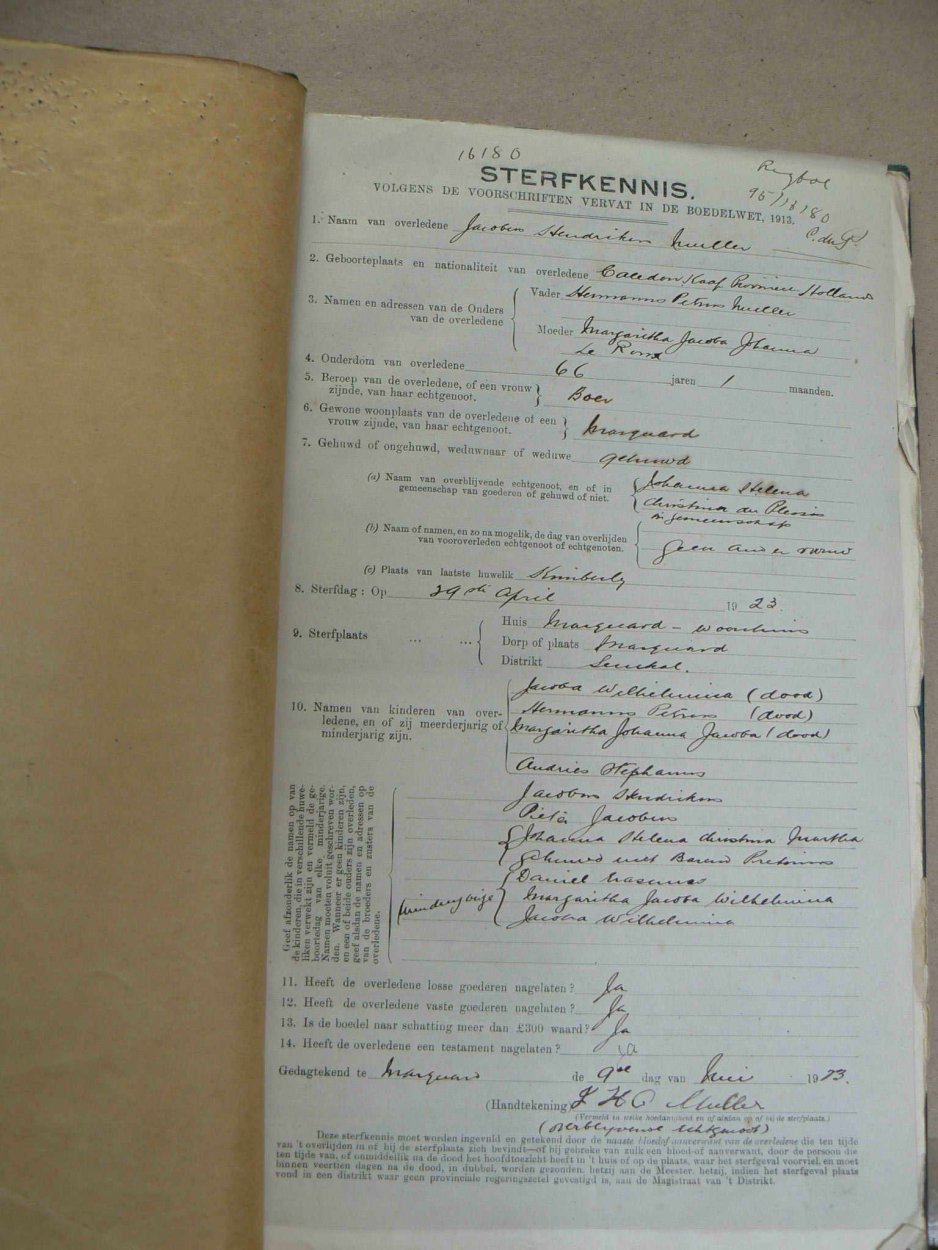 16180
STERFKENNIS.
95/16180
VOLGENS DE VOORSCHRIFTEN VERVAT IN DE BOEDELWET, 1913.
C. du P.
1. Naam van overledene Jacobus Hendrikus Muller
2. Geboorteplaats en nationaliteit van overledene Caledon Kaap Provincie Hollands
3. Namen en adressen van de Ouders van de overledene
Vader Hermanus Petrus Muller
Moeder Margaritha Jacoba Johanna
Le Roux
4. Onderdom van overledene 66 jaren 1 maanden.
5. Beroep van de overledene, of een vrouw
zijnde, van haar echtgenoot. Boer
6. Gewone woonplaats van de overledene of een
vrouw zijnde, van haar echtgenoot. Marquard
7. Gehuwd of ongehuwd, weduwnaar of weduwe gehuwd
(a) Naam van overblijvende echtgenoot, en of in
gemeenschap van goederen of gehuwd of niet.
Johanna Helena
Christina du Plessis
in gemeenschap
(b) Naam of namen, en zo na mogelik, de dag van overlijden
van vooroverleden echtgenoot of echtgenoten.
geen ander vrouw
(c) Plaats van laatste huwelik Kimberly
8. Sterfdag : Op 29ste April 1923.
9. Sterfplaats ... ...
Huis Marquard - woonhuis
Dorp of plaats Marquard
Distrikt Senekal.
10. Namen van kinderen van over-
ledene, en of zij meerderjarig of
minderjarig zijn.
Jacoba Wilhelmina (dood)
Hermanus Petrus (dood)
Margaritha Johanna Jacoba (dood)
Andries Stephanus
Jacobus Hendrikus
Pieter Jacobus
Johanna Helena Christina Martha
Gehuwd met Barend Pretorius
Daniel Erasmus
Margaritha Jacoba Wilhelmina
Jacoba Wilhelmina
(minderjarige)
Geef afzonderlik de namen op van
de kinderen, die in verschillende huwe-
liken verwekt zijn en vermeld de ge-
boortedag van elke minderjarige.
Namen moeten voluit geschreven wor-
den. Wanneer er geen kinderen zijn,
en een of beide ouders zijn overleden,
geef alsdan de namen en adressen op
van de broeders en zusters van de
overledene.
11. Heeft de overledene losse goederen nagelaten ? Ja
12. Heeft de overledene vaste goederen nagelaten ? Ja
13. Is de boedel naar schatting meer dan £300 waard? Ja
14. Heeft de overledene een testament nagelaten ? ja
Gedagtekend te Marquard de 9de dag van Mei 1923.
(Handtekening) J H C Muller
(Vermeld in welke hoedanigheid en of alsdan op of bij de sterfplaats.)
(overblyvende Echtgenoot)
Deze sterfkennis moet worden ingevuld en getekend door de naaste bloed of aanverwant van de overledene die ten tijde
van 't overlijden in of bij de sterfplaats zich bevindt—of bij gebreke van zulk een bloed-of aanverwant, door de persoon die
ten tijde van, of onmiddellik na de dood het hoofdtoezicht heeft in 't huis of op de plaats, waar het sterfgeval voorviel, en moet
binnen veertien dagen na de dood, in dubbel, worden gezonden, hetzij aan de Meester, hetzij, indien het sterfgeval plaats
vond in een distrikt waar geen provinciale regeringszetel gevestigd is, aan de Magistraat van 't Distrikt.